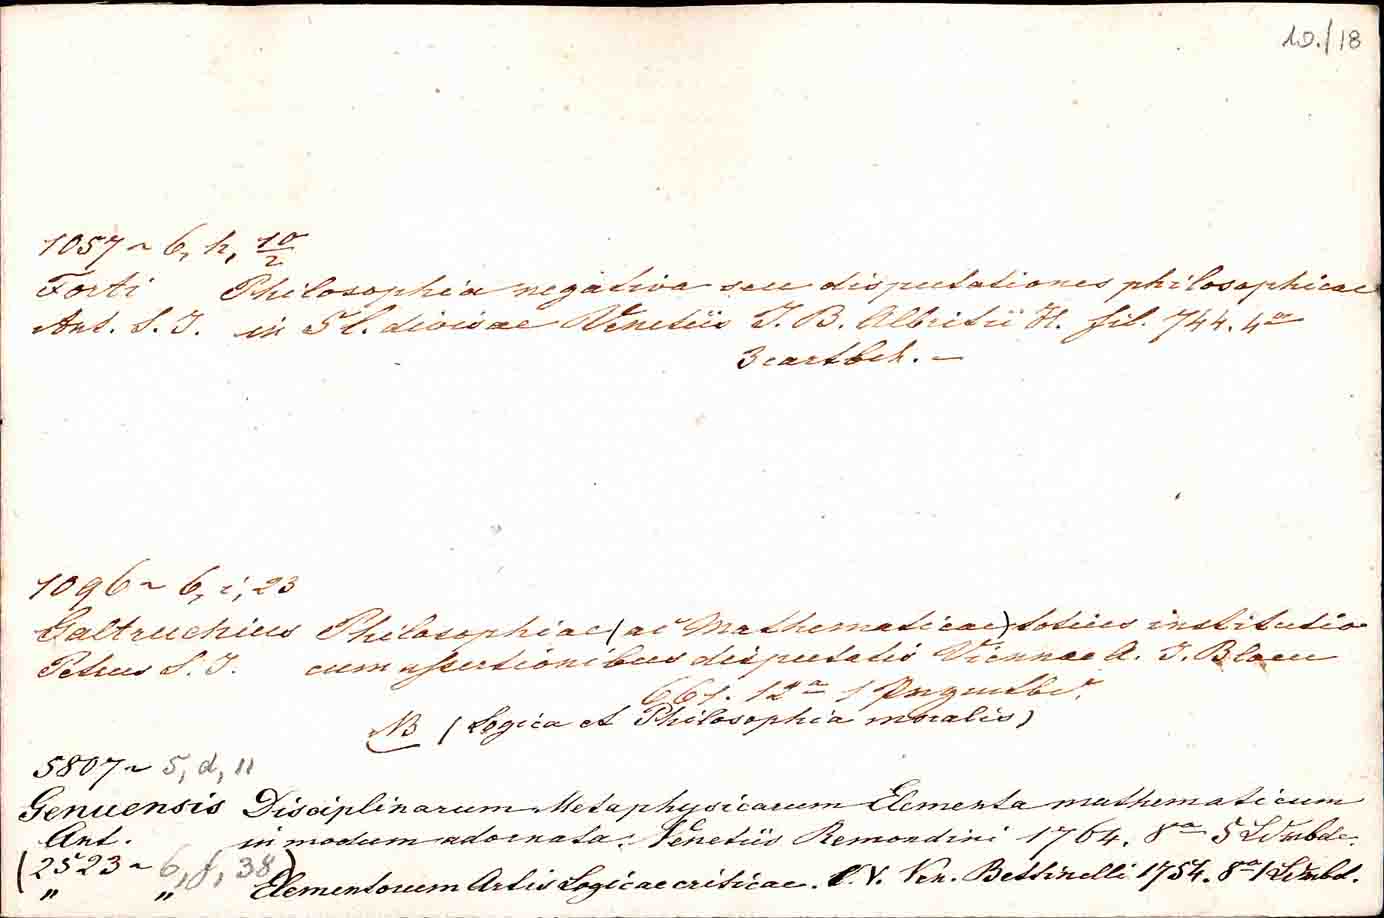 10./18
1057 ~ 6, h, 10/2
Forti Philosophia negativa seu disputationes philosophicae
Ant. S. J. in 5 l. divisae Venetiis J. B. Albritii H. fil. 744. 4º
3 cartbch. —
1096 ~ 6, i, 23
Galtruchius Philosophiae (ac Mathematicae) totius institutio
Petrus S. J. cum assertionibus disputatis Viennae A. J. Blaeu
661. 12ª 1
NB (Logica et Philosophia moralis)
5807 ~ 5, d, 11
Genuensis Disciplinarum Metaphysicarum Elementa mathematicum
Ant. in modum adornata. Venetiis Remondini 1764. 8ª 5
(2523 ~ 6, f, 38)
" " Elementorum Artis Logicae criticae. l. V. Ven. Bettinelli 1754. 8ª 1